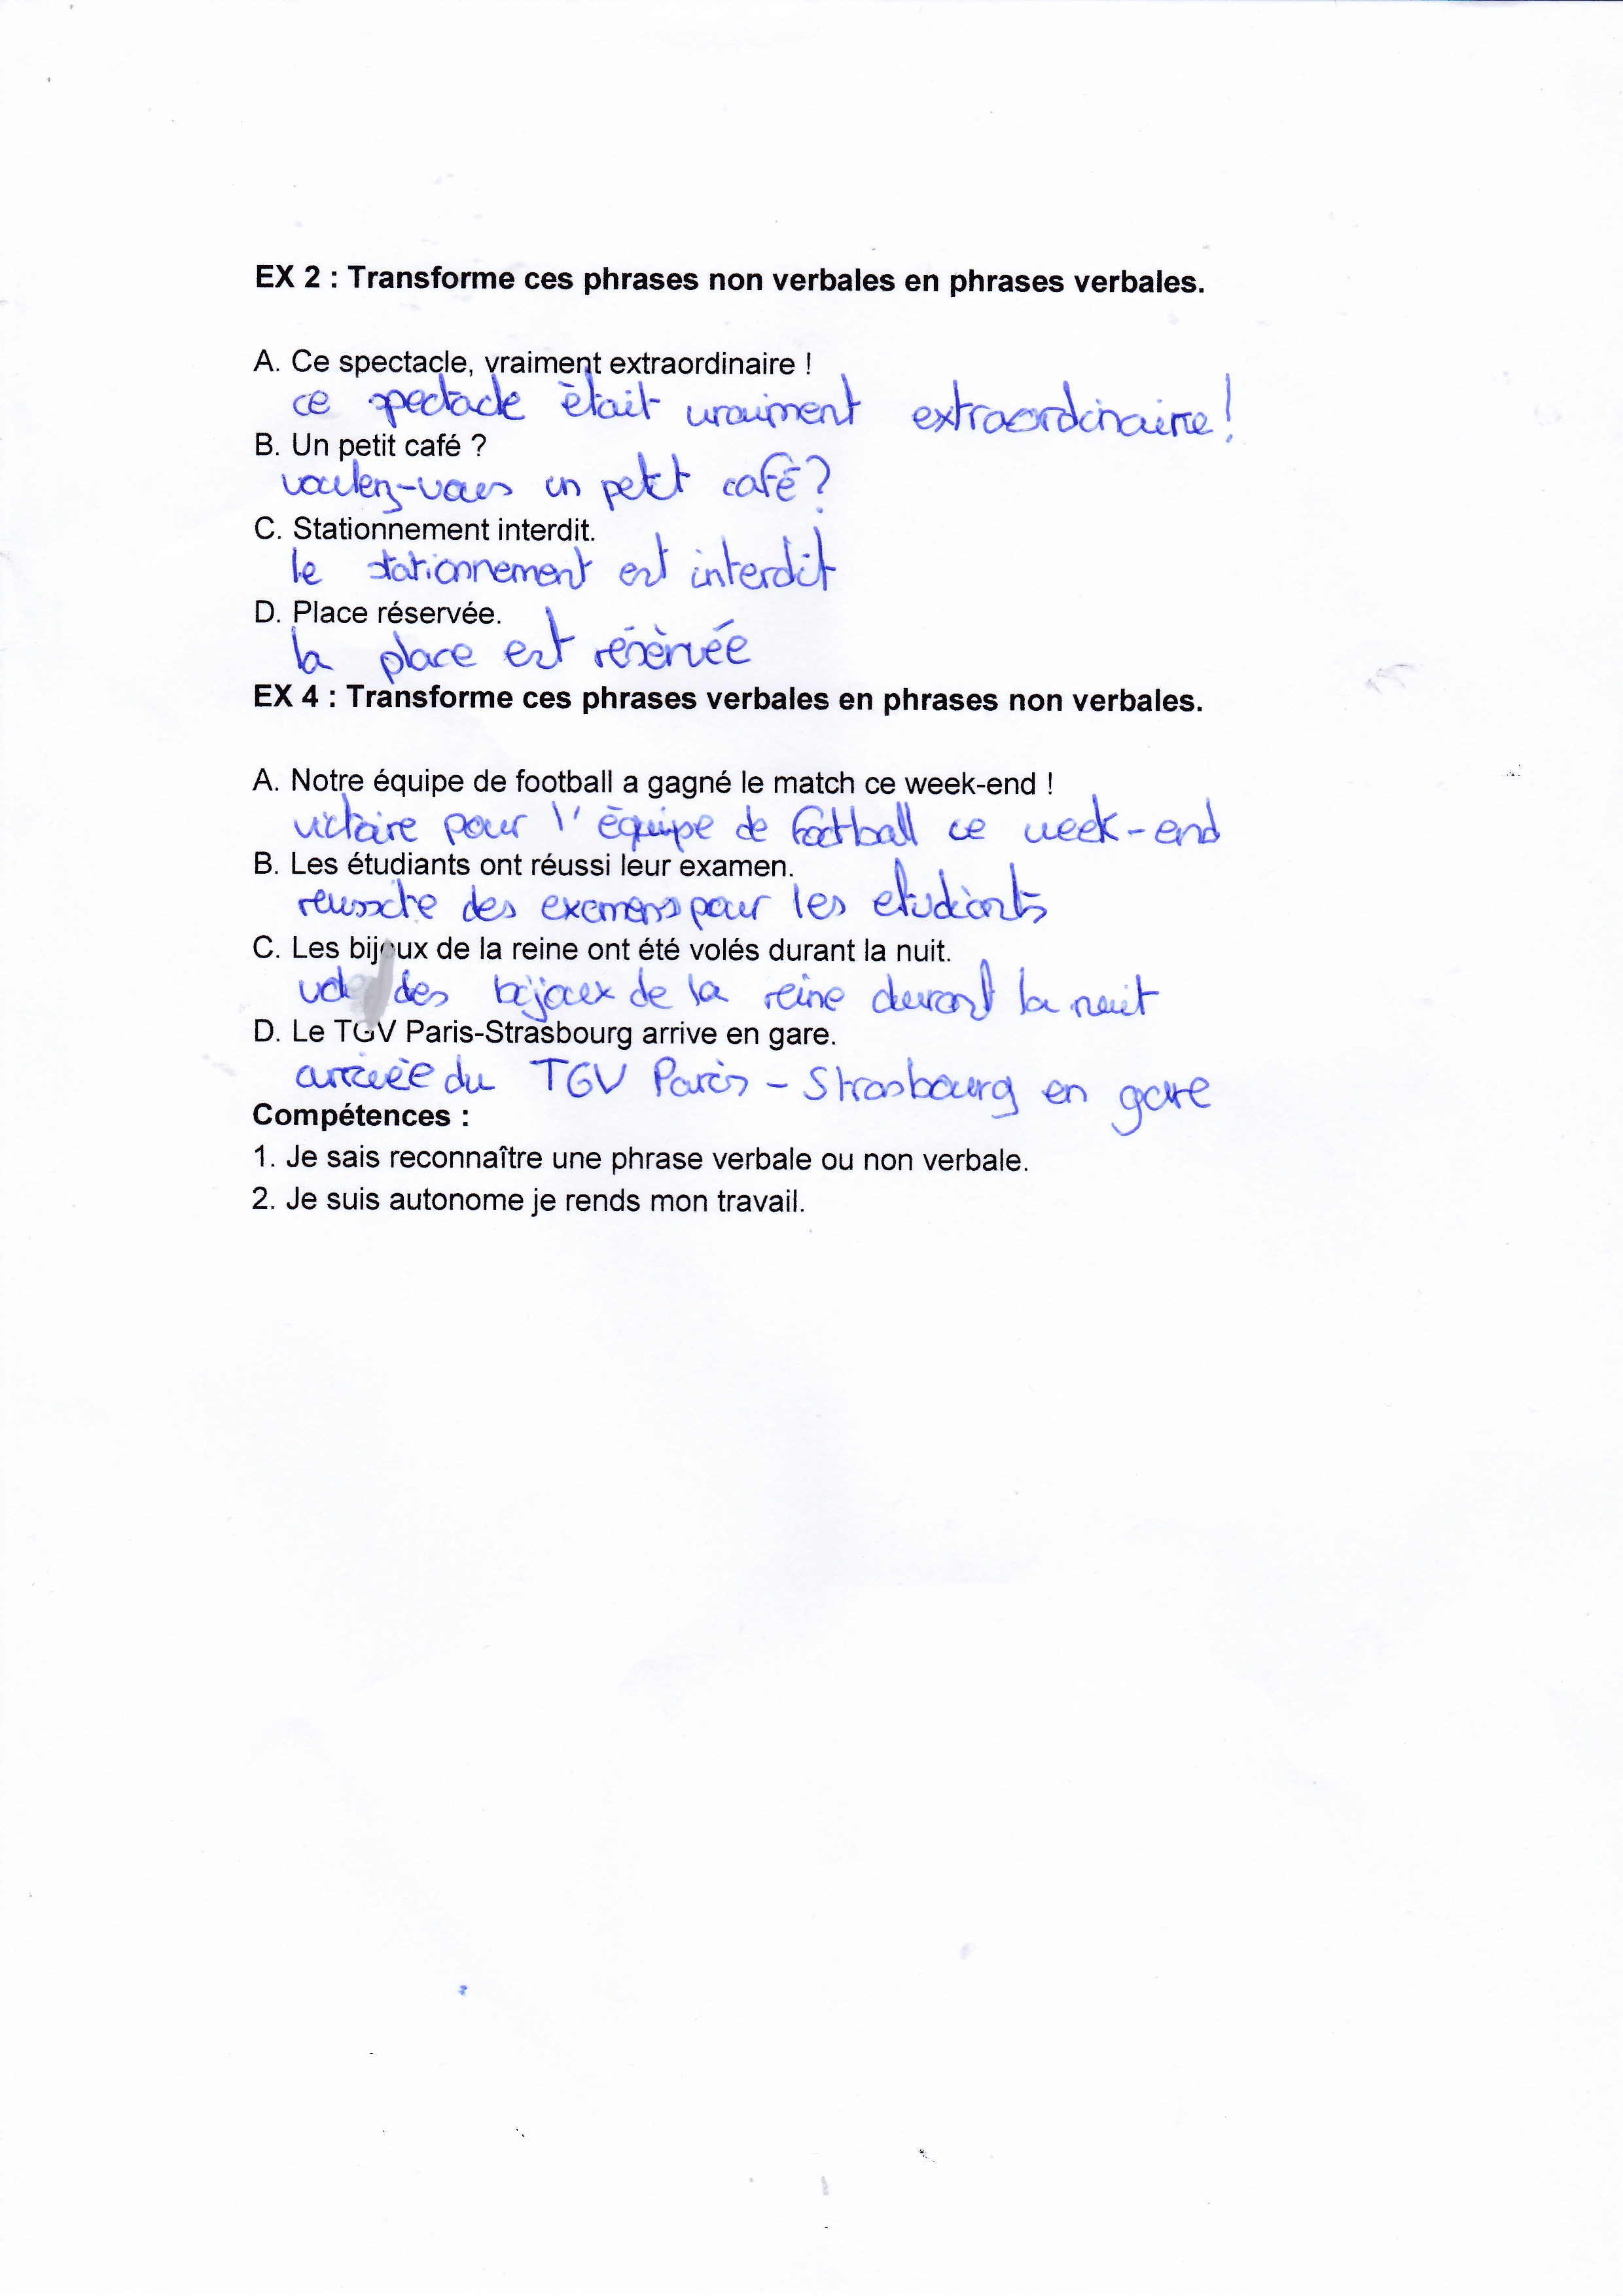 EX 2 : Transforme ces phrases non verbales en phrases verbales.
A. Ce spectacle, vraiment extraordinaire !
ce spectacle était vraiment extraordinaire !
B. Un petit café ?
voulez-vous un petit café ?
C. Stationnement interdit.
le stationnement est interdit
D. Place réservée.
la place est résèrvée
EX 4 : Transforme ces phrases verbales en phrases non verbales.
A. Notre équipe de football a gagné le match ce week-end !
victoire pour l'équipe de football ce week-end
B. Les étudiants ont réussi leur examen.
reussite des examens pour les etudiants
C. Les bijoux de la reine ont été volés durant la nuit.
vol des bijoux de la reine durant la nuit
D. Le TGV Paris-Strasbourg arrive en gare.
arrivée du TGV Paris - Strasbourg en gare
Compétences :
1. Je sais reconnaître une phrase verbale ou non verbale.
2. Je suis autonome je rends mon travail.